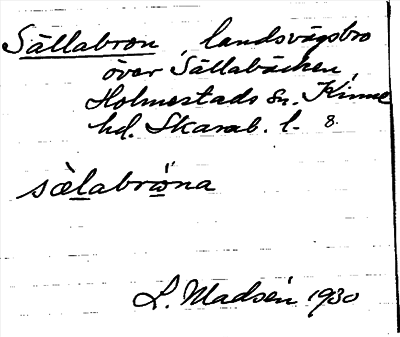 Sällabron, landsvägsbro
över Sällabäcken,
Holmestads sn. Kinne
hd. Skarab. l. 8.
sælabròna
L. Madsén 1930